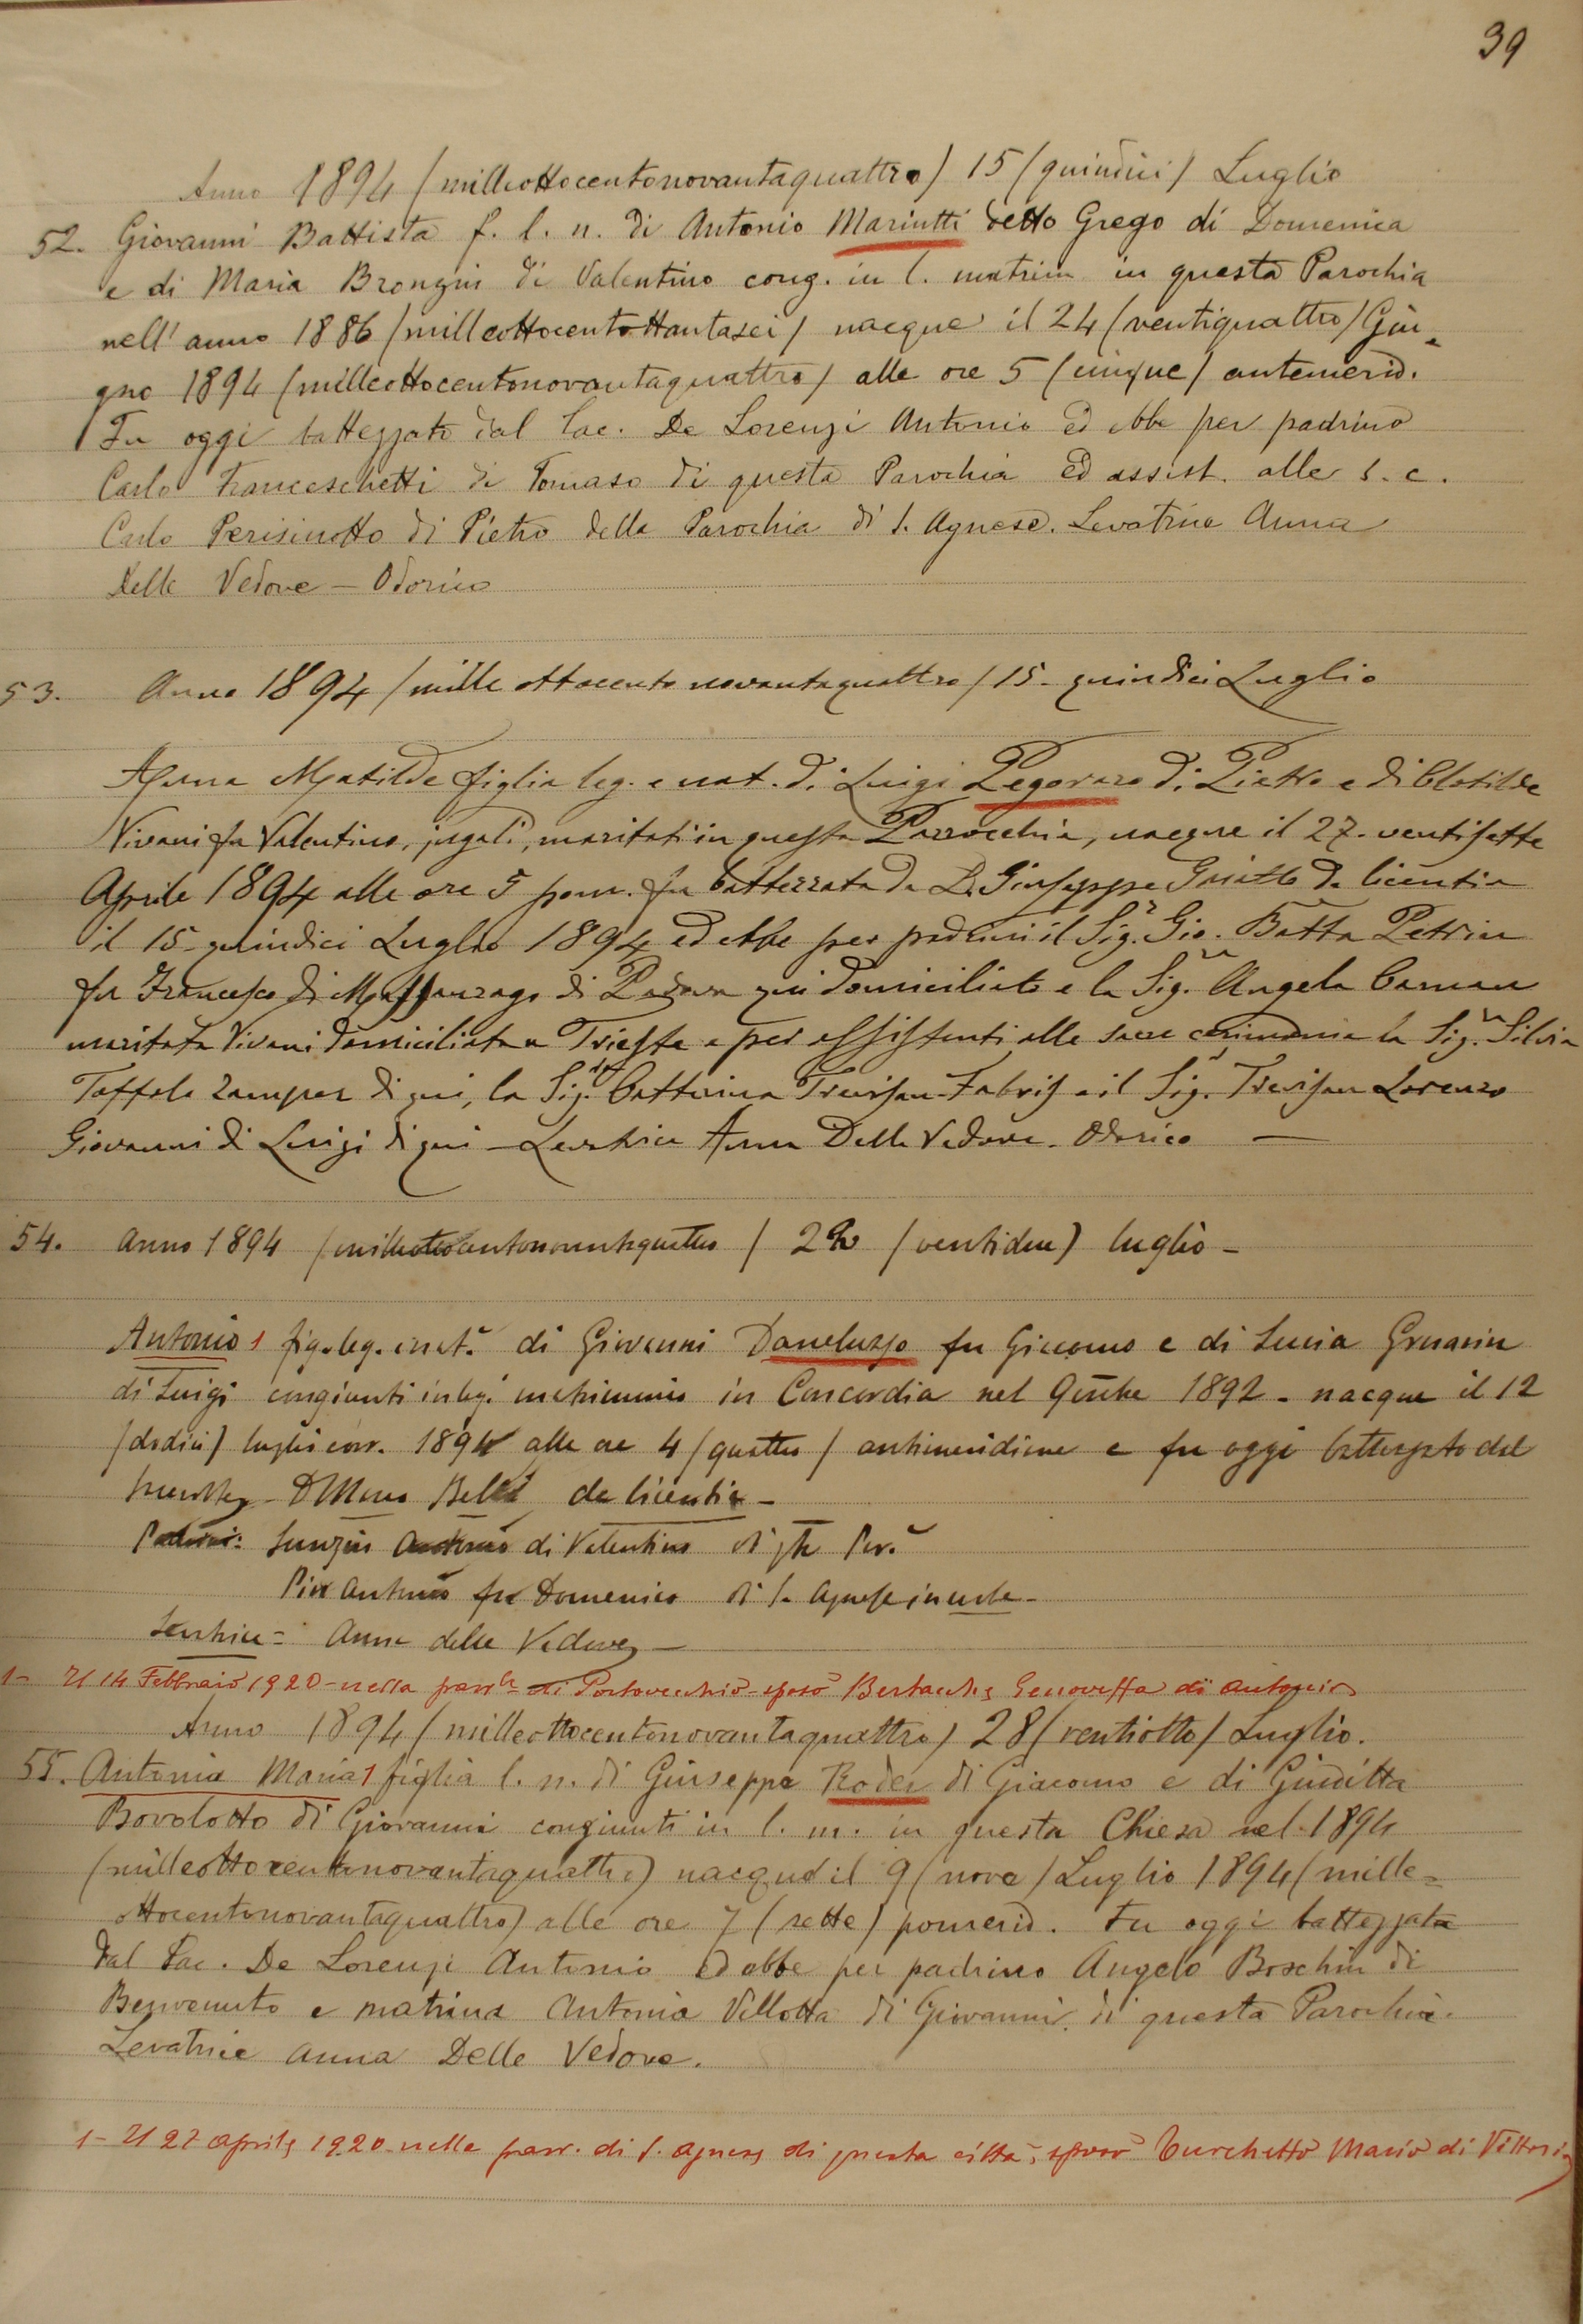 39
Anno 1894 (milleottocentonovantaquattro) 15 (quindici) Luglio
52. Giovanni Battista f. l. n. di Antonio Mariutti detto Grego di Domenica
e di Maria Brongin di Valentino cong. in l. matrim in questa Parochia
nell' anno 1886 (milleottocentottantasei) nacque il 24 (ventiquattro) Giu-
gno 1894 (milleottocentonovantaquattro) alle ore 5 (cinque) antemerid.
Fu oggi battezzato dal Sac. De Lorenzi Antonio ed ebbe per padrino
Carlo Franceschetti di Tomaso di questa Parochia ed assist. alle s. c.
Carlo Perisinotto di Pietro della Parochia di S. Agnese. Levatrice Anna
Delle Vedove - Odorico
53. Anno 1894 (mille ottocento novantaquattro) 15 - quindici Luglio
Anna Matilde figlia leg. e nat. di Luigi Pegoraro di Pietro e di Clotilde
Vivani fu Valentino, jugali, maritati in questa Parrocchia, nacque il 27 - ventisette
Aprile 1894 alle ore 5 pom. fu battezzata da D. Giuseppe de licentia
il 15 - quindici Luglio 1894 ed ebbe per padrini il Sig.r Gio. Batta Petrin
fu Francesco di Massanzago di Padova qui domiciliato e la Sig.ra Angela
maritata Vivani domiciliata a Trieste e per assistenti alle sacre cerimonie la Sig.ra Silvia
Toffolo Zamper di qui, la Sig.ra Catterina Trevisan-Fabris e il Sig.r Trevisan Lorenzo
Giovanni di Luigi di qui - Levatrice Anna Delle Vedove - Odorico —
54. Anno 1894 (milleottocentonovantaquattro) 22 (ventidue) luglio -
Antonio 1 fig. leg. e nat. di Giovanni Daneluzzo fu Giacomo e di Lucia Gruarin
di Luigi congiunti in leg. matrimonio in Concordia nel 1892 - nacque il 12
(dodici) luglio corr. 1894 alle ore 4 (quattro) antimeridiane e fu oggi battezzato dal
D. Marco Belli de licentia -
Padrini: Antonio di Valentino di qta Par.
Pin Antonio fu Domenico di S. Agnese in urbe -
Levatrice = Anna delle Vedove -
1 - Il 14 Febbraio 1920 - nella parr. di Portovecchio - sposò Bertacche Genoveffa di Antonio
Anno 1894 (milleottocentonovantaquattro) 28 (ventiotto) Luglio.
55. Antonia Maria 1 figlia l. n. di Giuseppe Roder di Giacomo e di Giuditta
Bovolotto di Giovanni congiunti in l. m. in questa Chiesa nel 1894
(milleottocentonovantaquattro) nacque il 9 (nove) Luglio 1894 (mille=
ottocentonovantaquattro) alle ore 7 (sette) pomerid. Fu oggi battezzata
dal Sac. De Lorenzi Antonio ed ebbe per padrino Angelo Boschin di
Benvenuto e matrina Antonia Villotta di Giovanni di questa Parochia.
Levatrice Anna Delle Vedove.
1 - Il 27 Aprile 1920 - nella parr. di S. Agnese di questa città, sposò Turchetto Mario di Vittorio